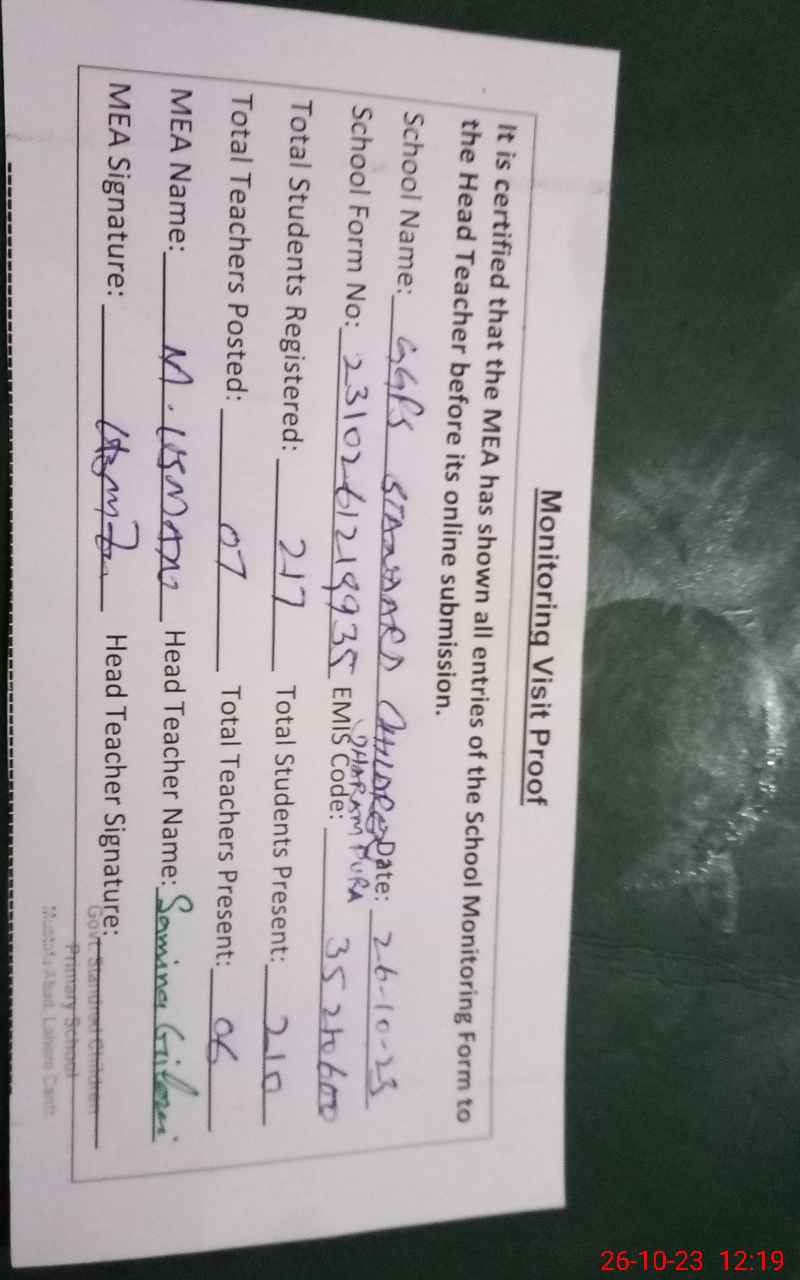 Monitoring Visit Proof
It is certified that the MEA has shown all entries of the School Monitoring Form to
the Head Teacher before its online submission.
School Name: GGPS STANDARD CHILDREN Date: 26-10-23
DHARAM PURA
School Form No: 2310261219935 EMIS Code: 35210600
Total Students Registered: 217 Total Students Present: 210
Total Teachers Posted: 07 Total Teachers Present: 06
MEA Name: M. USMAN Head Teacher Name: Samina
MEA Signature: Head Teacher Signature:
Govt. Standred Children
Primary School
Mustafa Abad, Lahore Cantt
26-10-23 12:19